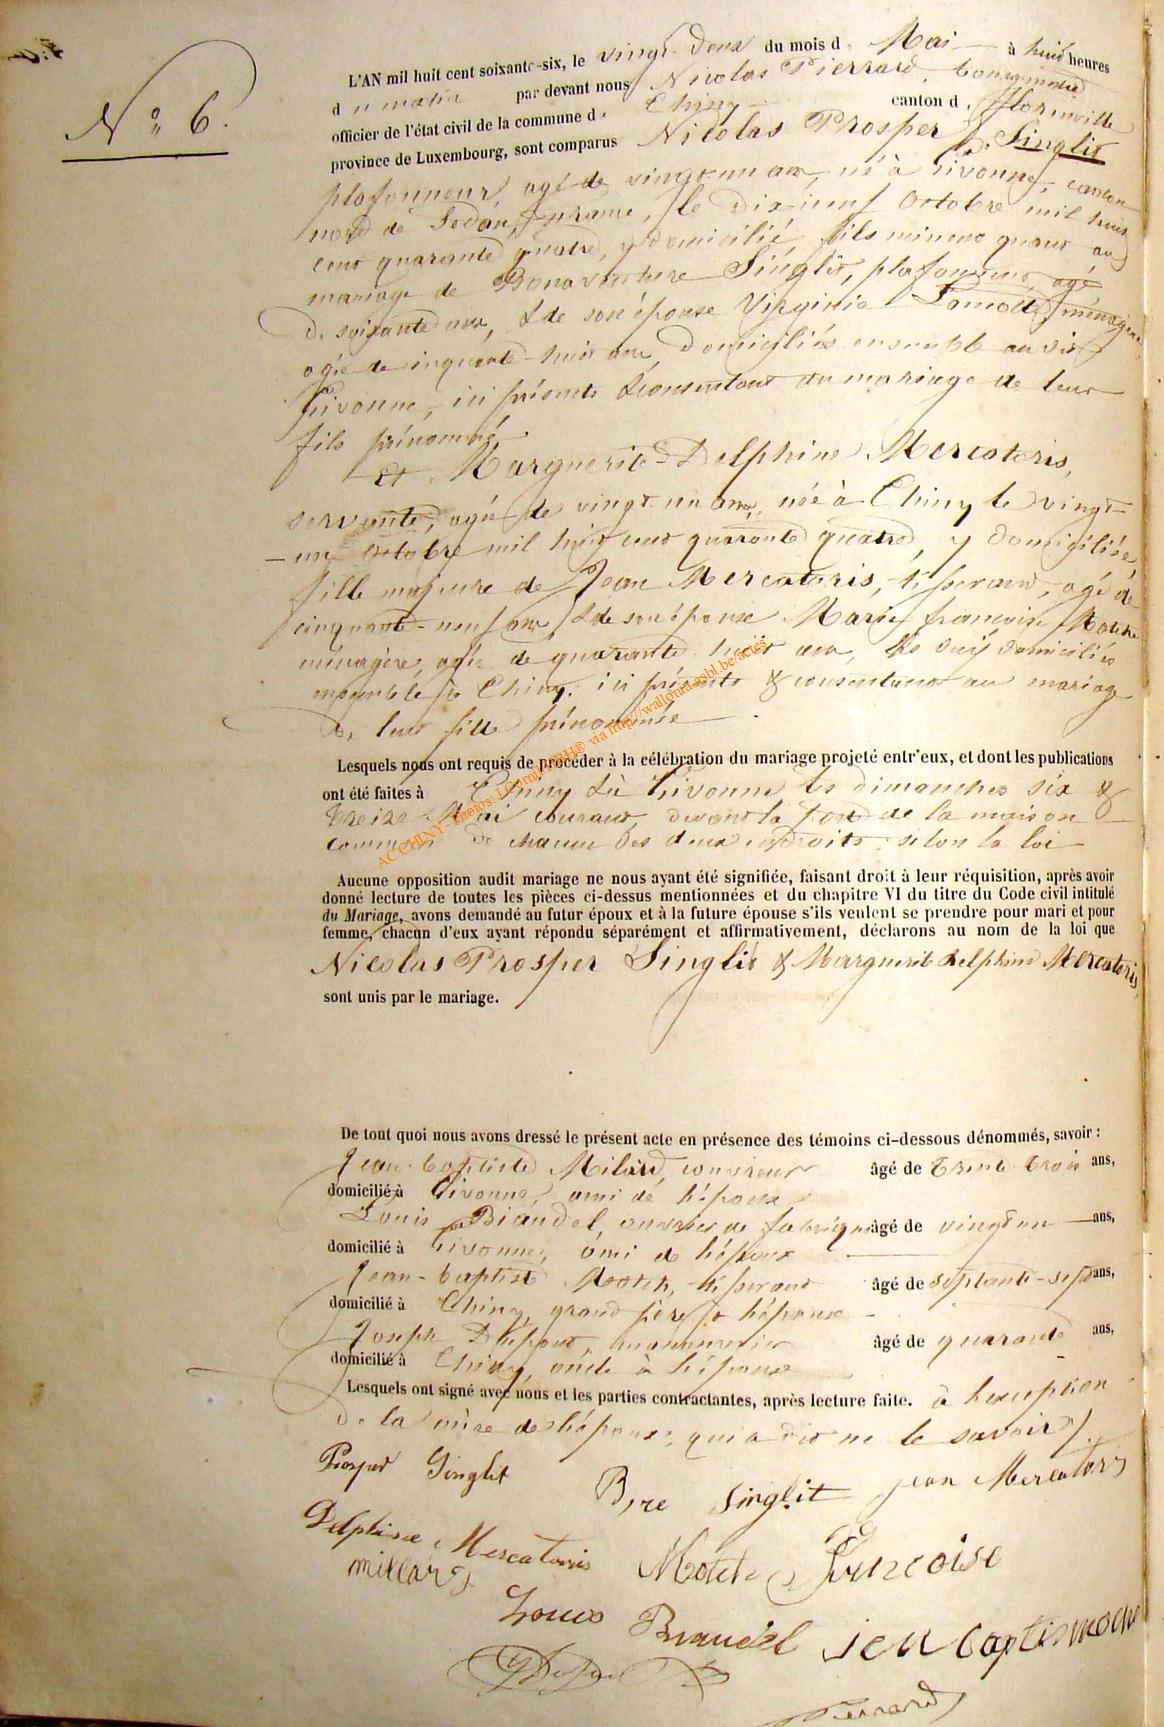 N° 6.
L'AN mil huit cent soixante-six, le vingt-deux du mois d. Mai à huit heures
d u matin par devant nous Nicolas Pierrard, bourgmestre
officier de l'état civil de la commune d. Chiny canton d. florenville
province de Luxembourg, sont comparus Nicolas Prosper Singlit
plafonneur, agé de vingt-un an, né à Givonne, canton
nord de Sedan, france, le dix-neuf Octobre mil huit
cent quarante quatre, y domicilié, fils mineur quant au
mariage de Bonaventure Singlit, plafonneur, agé
de soixante ans, & de son épouse Virginie Lamotte, ménagère,
agée de cinquante-huit ans, domiciliés ensemble au dit
Givonne, ici présents & consentant au mariage de leur
fils prénommé
Et Marguerite Delphine Mercatoris,
servante, agée de vingt-un ans, née à Chiny le vingt
-un Octobre mil huit cent quarante quatre, y domiciliée,
fille majeure de Jean Mercatoris, tisserand, agé de
cinquante-neuf ans & de son épouse Marie françoise Motch
ménagère, agée de quarante huit ans, domiciliés
ensemble à Chiny, ici présents & consentant au mariage
de leur fille prénommée
Lesquels nous ont requis de procéder à la célébration du mariage projeté entr'eux, et dont les publications
ont été faites à Chiny & à Givonne les dimanches six &
treize Mai courant, devant la porte de la maison
commune de chacun des deux endroits, selon la loi
Aucune opposition audit mariage ne nous ayant été signifiée, faisant droit à leur réquisition, après avoir
donné lecture de toutes les pièces ci-dessus mentionnées et du chapitre VI du titre du Code civil intitulé
du Mariage, avons demandé au futur époux et à la future épouse s'ils veulent se prendre pour mari et pour
femme, chacun d'eux ayant répondu séparément et affirmativement, déclarons au nom de la loi que
Nicolas Prosper Singlit & Marguerite delphine Mercatoris,
sont unis par le mariage.
De tout quoi nous avons dressé le présent acte en présence des témoins ci-dessous dénommés, savoir :
Jean-baptiste Milard, couvreur âgé de trente trois ans,
domicilié à Givonne, ami de l'époux
Louis Biandel, ouvrier de fabrique âgé de vingt un ans,
domicilié à Givonne, ami de l'époux
Jean-baptiste Motch, tisserand âgé de septante-sept ans,
domicilié à Chiny, grand père à l'épouse
Joseph âgé de quarante ans,
domicilié à Chiny, oncle à l'épouse
Lesquels ont signé avec nous et les parties contractantes, après lecture faite. à l'exception
de la mère de l'épouse, qui a dit ne le savoir /.
Prosper Singlit Bre Singlit jean Mercatoris
Delphine Mercatoris Motch Françoise
millard
Louis Brandel jean baptis moch
Pierrard
AC CHINY - Photos: via http://wallonia-asbl.be/actes